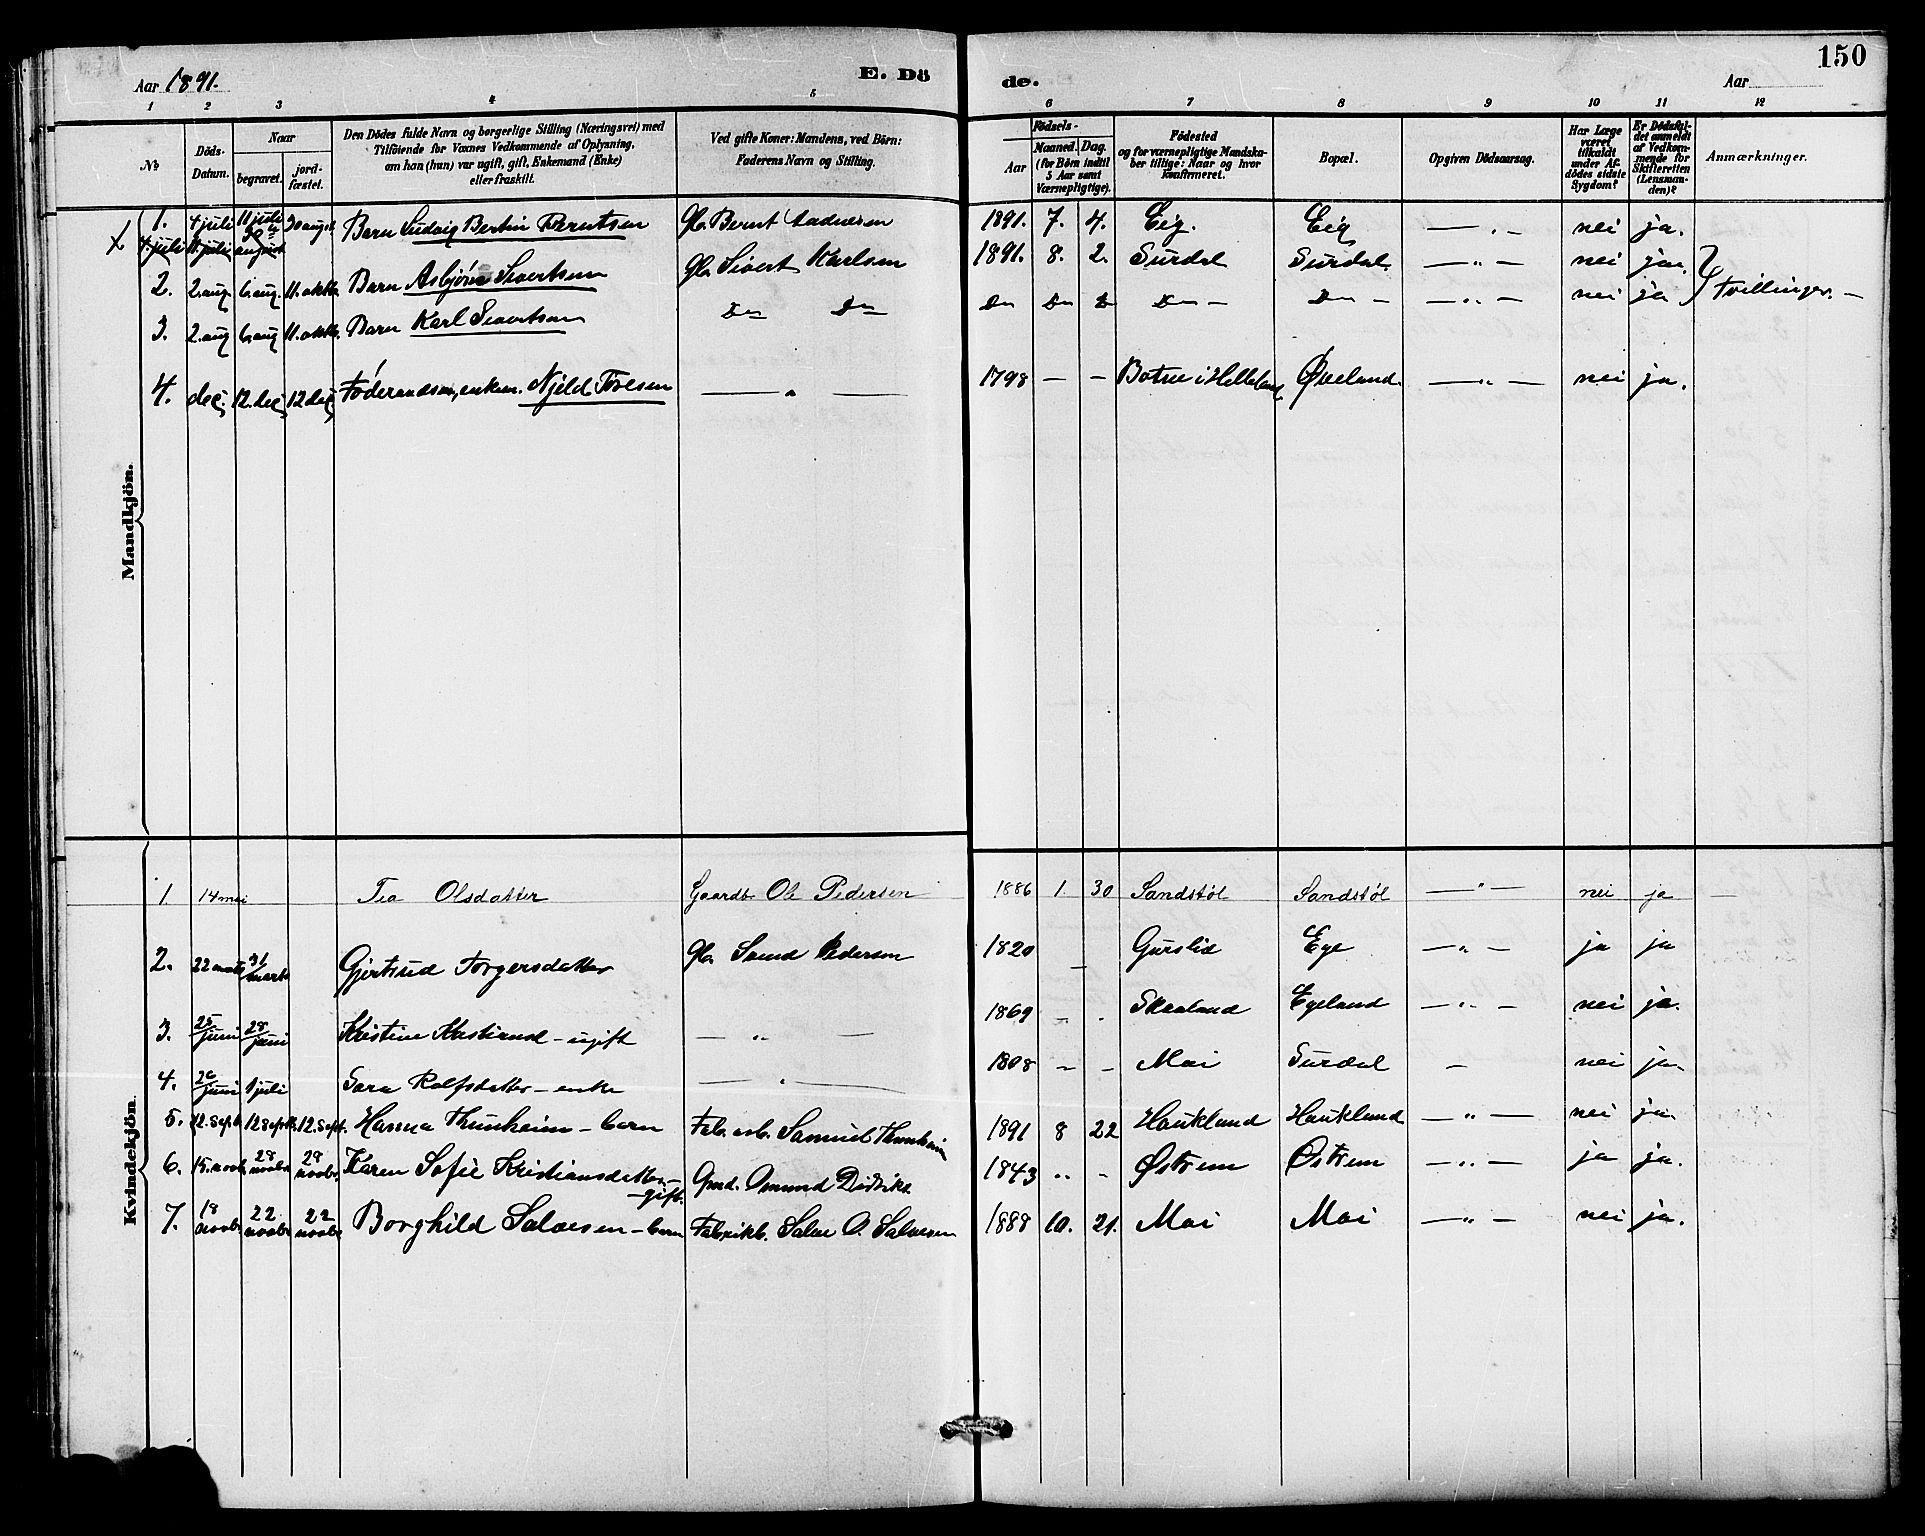 150
Aar 1891.
E. Dö
de.
Aar
1 2 3 4 5 6 7 8 9 10 11 12
№
Döds-
Datum.
Naar
begravet.
jord-
fæstet.
Den Dödes fulde Navn og borgerlige Stilling (Næringsvei) med
Tilföiende for Voxnes Vedkommende af Oplysning,
om han (hun) var ugift, gift, Enkemand (Enke)
eller fraskilt.
Ved gifte Koner: Mandens, ved Börn:
Faderens Navn og Stilling.
Födsels-
Aar
Maaned. Dag.
(for Börn indtil
5 Aar samt
Værnepligtige).
Födested
og for værnepligtige Mandska-
ber tillige: Naar og hvor
konfirmeret.
Bopæl.
Opgiven Dödsaarsag.
Har Læge
været
tilkaldt
under Af-
dödes sidste
Sygdom?
Er Dödsfal-
det anmeldt
af Vedkom-
mende for
Skifteretten
(Lensman-
den)?
Anmærkninger.
Mandkjön.
1. 4 juli 11 juli 30 august Barn Ludvig Bertin Berntsen Gbr. Bernt 1891. 7. 4. Eig. Eig — " — nei ja.
2. 2. aug. 6. aug. 11. oktb. Barn Asbjörn Sivertsen Gbr. Sivert Karlsen 1891. 8. 2. Surdal Surdal — " — nei ja.
3. 2. aug 6. aug 11. oktb. Barn Karl Sivertsen Do Do Do Do Do Do — Do — — " — nei ja tvillinger. —
4. dec. 12. dec 12 dec Föderaadsm, enkem. Njeld Toresen — " — 1798 — — Botne i Helleland Øveland. — " — nei ja.
Kvindekjön.
1. 14 mai Tea Olsdatter Gaardb. Ole Pedersen 1886 1. 30 Sandstøl Sandstøl — " — nei ja —
2. 22 marts 31 marts Gjertrud Torgersdatter Gbr. Pedersen 1820 — Gurslid Ege — " — ja ja
3. 25 juni 28 juni Kristine — ugift — " — 1869 - . Skaaland Egeland — " — nei ja.
4. 26 juni 1 juli Sara Rolfsdatter — enke — " — 1808 - - Moi Surdal — nei ja.
5. 12. septb. 12 septb. 12. sept. Hanna Thunheim — barn Fab. arb. Samuel Thunheim 1891 8 22 Haukland Haukland — " — nei ja.
6. 15. novb. 28 novb. 28 novb. Karen Sofie Kristiansdatter — gift. Gmd. Omund Didriks. 1843 " - Østrem Østrem — " — ja ja.
7. 18 novb. 22 novb. 22 novb. Borghild Salvesen — barn Fabrikb. Salve O. Salvesen 1888 10. 21. Moi Moi — " — nei ja.